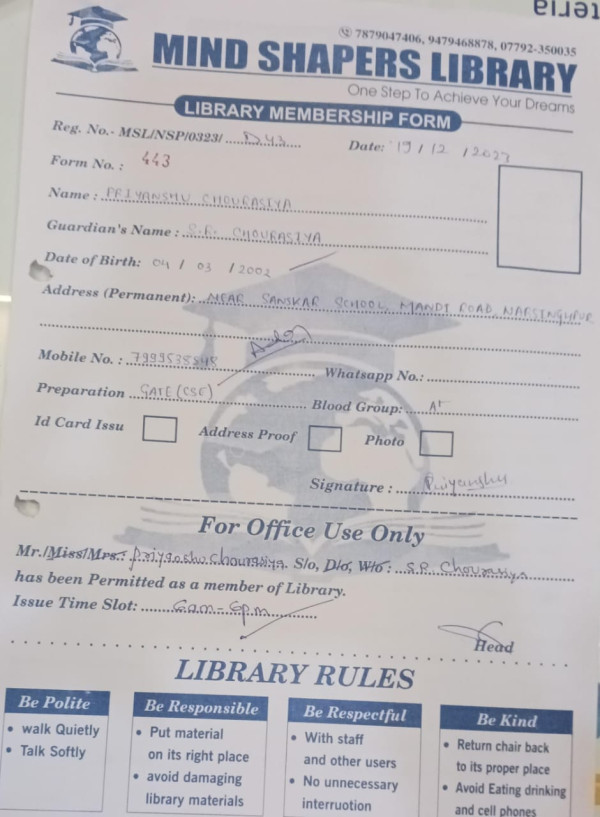 7879047406, 9479468878, 07792-350035
MIND SHAPERS LIBRARY
One Step To Achieve Your Dreams
LIBRARY MEMBERSHIP FORM
Reg. No.- MSL/NSP/0323/ D43 Date: 19 / 12 / 2023
Form No. : 443
Name : PRIYANSHU CHOURASIYA
Guardian's Name : S.R. CHOURASIYA
Date of Birth: 04 / 03 / 2002
Address (Permanent): NEAR SANSKAR SCHOOL, MANDI ROAD, NARSINGHPUR
Mobile No. : Whatsapp No.:
Preparation GATE (CSE) Blood Group: A+
Id Card Issu Address Proof Photo
Signature : Priyanshu
For Office Use Only
Mr./Miss/Mrs.: Priyanshu Chourasiya S/o, D/o, W/o : S.R. Chourasiya
has been Permitted as a member of Library.
Issue Time Slot: 6am-6pm
Head
LIBRARY RULES
Be Polite Be Responsible Be Respectful Be Kind
• walk Quietly • Put material • With staff • Return chair back
• Talk Softly on its right place and other users to its proper place
• avoid damaging • No unnecessary • Avoid Eating drinking
library materials interruotion and cell phones